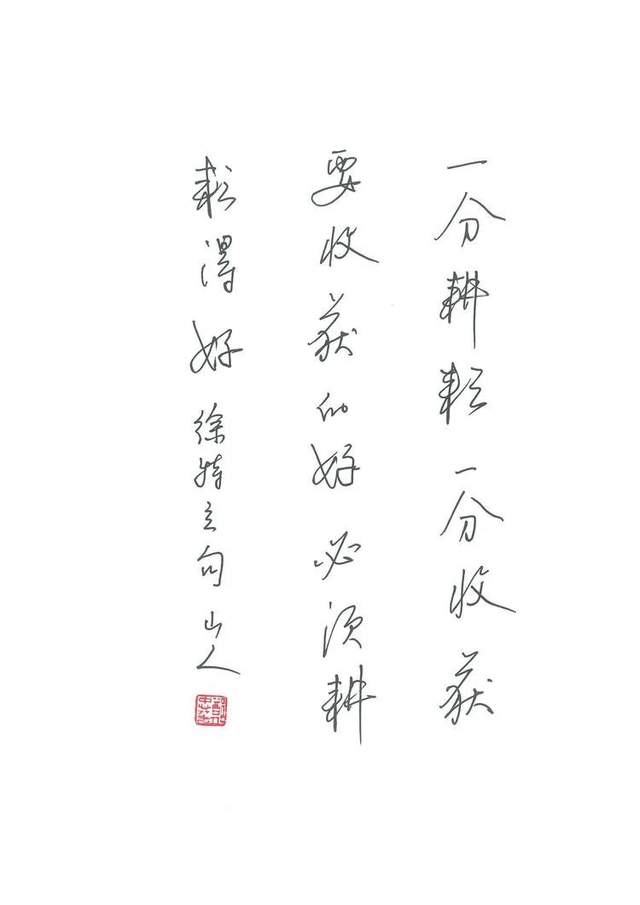 一分耕耘一分收获
要收获的好必须耕
耘得好 徐特立句 山人